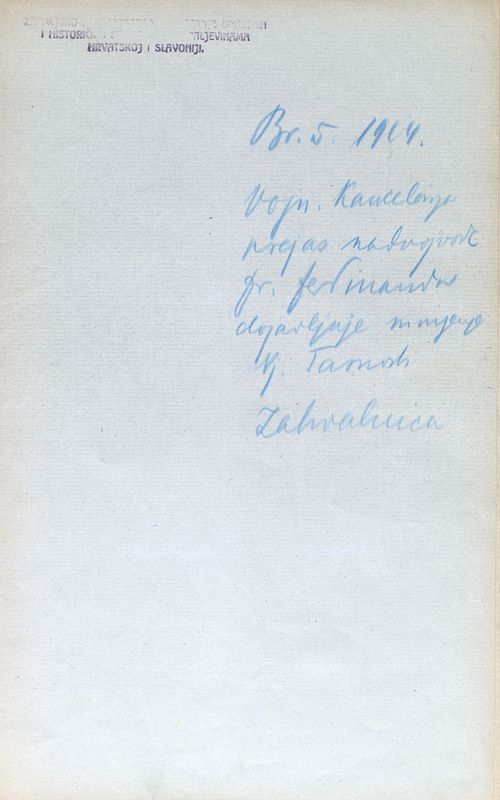 I HISTORIČ
ALJEVINAMA
HRVATSKOJ I SLAVONIJI.
Br. 5. 1914.
Vojn. Kancelarija
prejas nadvojvode
Fr. Ferdinanda
dojavljuje mnijenje
Kj.
Zahvalnica